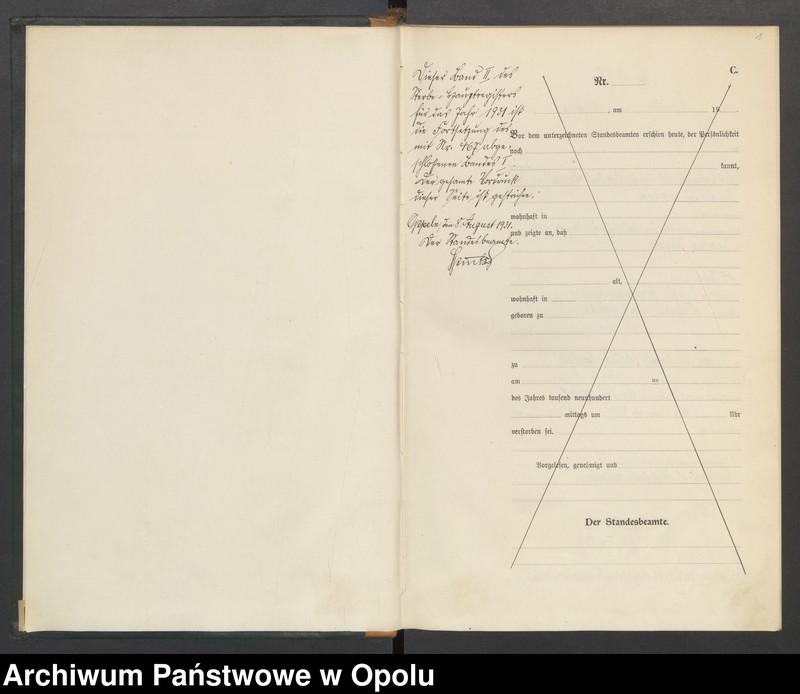 1
C.
Dieser Band II des
Sterbe-Hauptregisters
für das Jahr 1931 ist
die Fortsetzung des
mit Nr. 467 abge-
schlossenen Bandes I.
Der gesamte Vordruck
dieser Seite ist gestrichen.
Oppeln, den 8. August 1931.
Der Standesbeamte.
Nr.
, am 19
Vor dem unterzeichneten Standesbeamten erschien heute, der Persönlichkeit
nach
kannt,
wohnhaft in
und zeigte an, daß
alt,
wohnhaft in
geboren zu
zu
am
des Jahres tausend neunhundert
mittags um Uhr
verstorben sei.
Vorgelesen, genehmigt und
Der Standesbeamte.
Archiwum Państwowe w Opolu